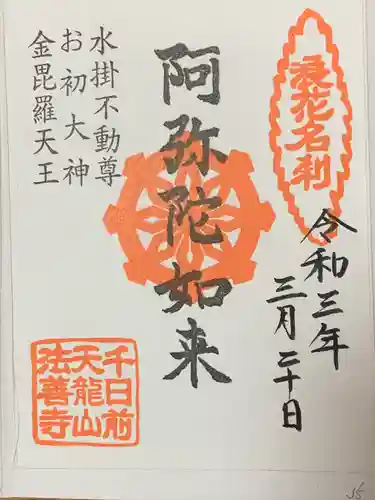 浪花名刹
令和三年
三月二十日
阿弥陀如来
水掛不動尊
お初大神
金毘羅天王
千日前
天龍山
法善寺
35